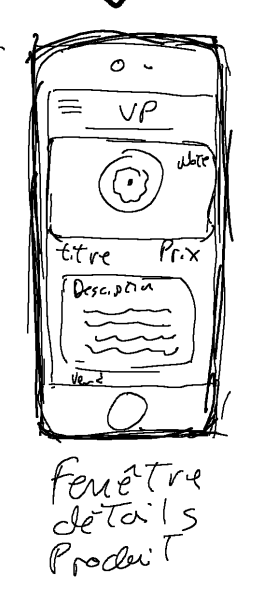 VP
Note
titre Prix
Description
Fenêtre
détails
Produit